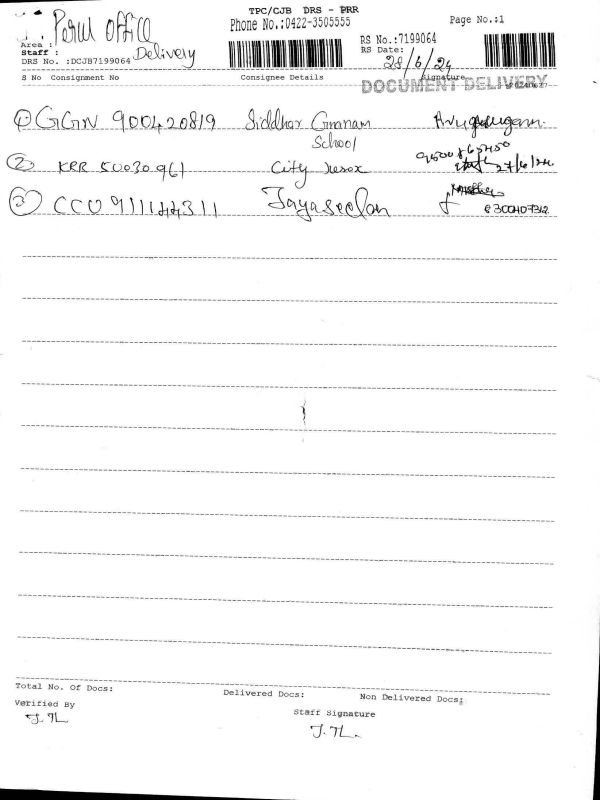 TPC/CJB DRS - PRR
Phone No.:0422-3505555
Page No.:1
Perul Office
Delivery
Area :
Staff :
DRS No. :DCJB7199064
RS No.:7199064
RS Date:
28/6/24
S No Consignment No Consignee Details Signature
DOCUMENT DELIVERY
① GGN 900420819 Siddhar Gnanam
School
② KRR 50030961 City Xerox
27/6/24
③ CCU 911144311 Jayaseelan
Total No. Of Docs: Delivered Docs: Non Delivered Docs:
Verified By
Staff Signature